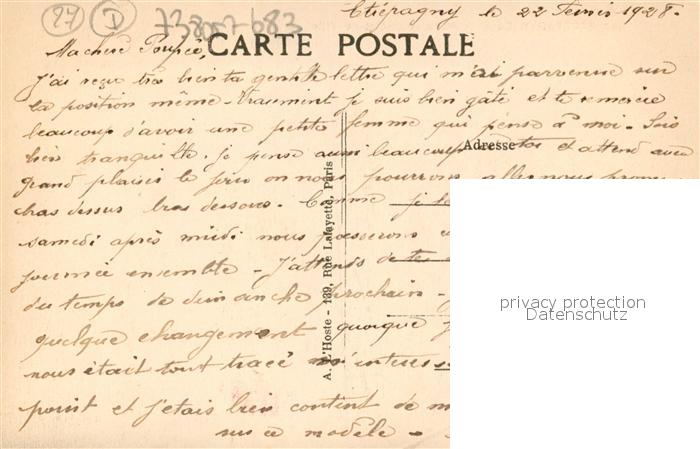 27 D 738007683
Etrépagny le 22 Février 1928.
CARTE POSTALE
Ma chère Poupée,
J'ai reçu très bien ta gentille lettre qui m'ai parvenue sur
la position même - Vraiment je suis bien gâté et te remercie
beaucoup d'avoir une petite femme qui pense à moi - Sois
bien tranquille. je pense aussi beaucoup toi et attend avec
Adresse
grand plaisir le jour ou nous pourrons aller nous
bras dessus bras dessous. Comme je
samedi après midi nous passerons
journée ensemble - J'attends
du temps de dimanche prochain -
quelque changement quoique
nous était tout tracé
point et j'etais bien content de
sur ce modèle -
A. L'Hoste - 139, Rue Lafayette, Paris
privacy protection
Datenschutz